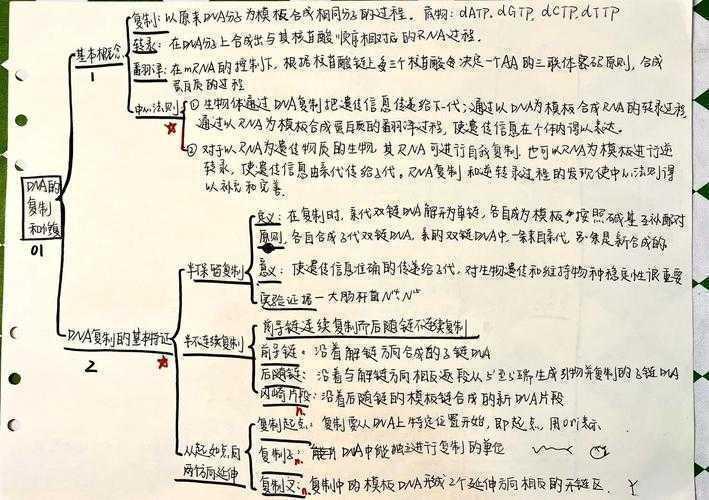 复制：以原来DNA分子为模板合成相同分子的过程。底物：dATP、dGTP、dCTP、dTTP
转录：在DNA分子上合成出与其核苷酸顺序相对应的RNA过程.
翻译：在mRNA的控制下，根据核苷酸链上每三个核苷酸决定一个AA的三联体密码原则，合成
蛋白质的过程
基本概念
1
中心法则
① 生物体通过DNA复制把遗传信息传递给下代；通过以DNA为模板合成RNA的转录过程
通过以RNA为模板合成蛋白质的翻译过程，使遗传信息在个体内得以表达。
② 对于以RNA为遗传物质的生物，其RNA可进行自我复制，也可以RNA为模板进行逆
转录，使遗传信息由亲代传给子代，RNA复制和逆转录过程的发现使中心法则得
以补充和完善.
DNA的
复制
和修复
01
DNA复制的基本特征
2
半保留复制
定义：在复制时，亲代双链DNA解开为单链，各自成为模板，按照碱基互补配对
原则，各自合成子代双链DNA，新的双链DNA中，一条来自亲代，另一条是新合成的
意义：使遗传信息准确的传递给子代，对生物遗传和维持物种稳定性很重要
实验证据－大肠杆菌N¹⁴、N¹⁵
半不连续复制
前导链连续复制而后随链不连续复制
前导链：沿着解链方向合成的子链DNA
后随链：沿着与解链方向相反逐段从5'至3'端生成引物并复制的子链DNA
冈崎片段：沿着后随链的模板链合成的新DNA片段
从起始点向
两个方向延伸
复制起点：复制要从DNA上特定位置开始，即起点，用ori表示
复制子：DNA中能独立进行复制的单位
复制叉：复制中的模板DNA形成2个延伸方向相反的开链区.